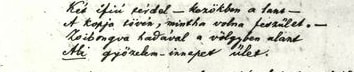 Két ifjú térdel – kezökben a lant –
A kopja tövin, mintha volna feszület. –
Zsibongva hadával a völgyben alant
Ali győzelem-ünnepet ület.